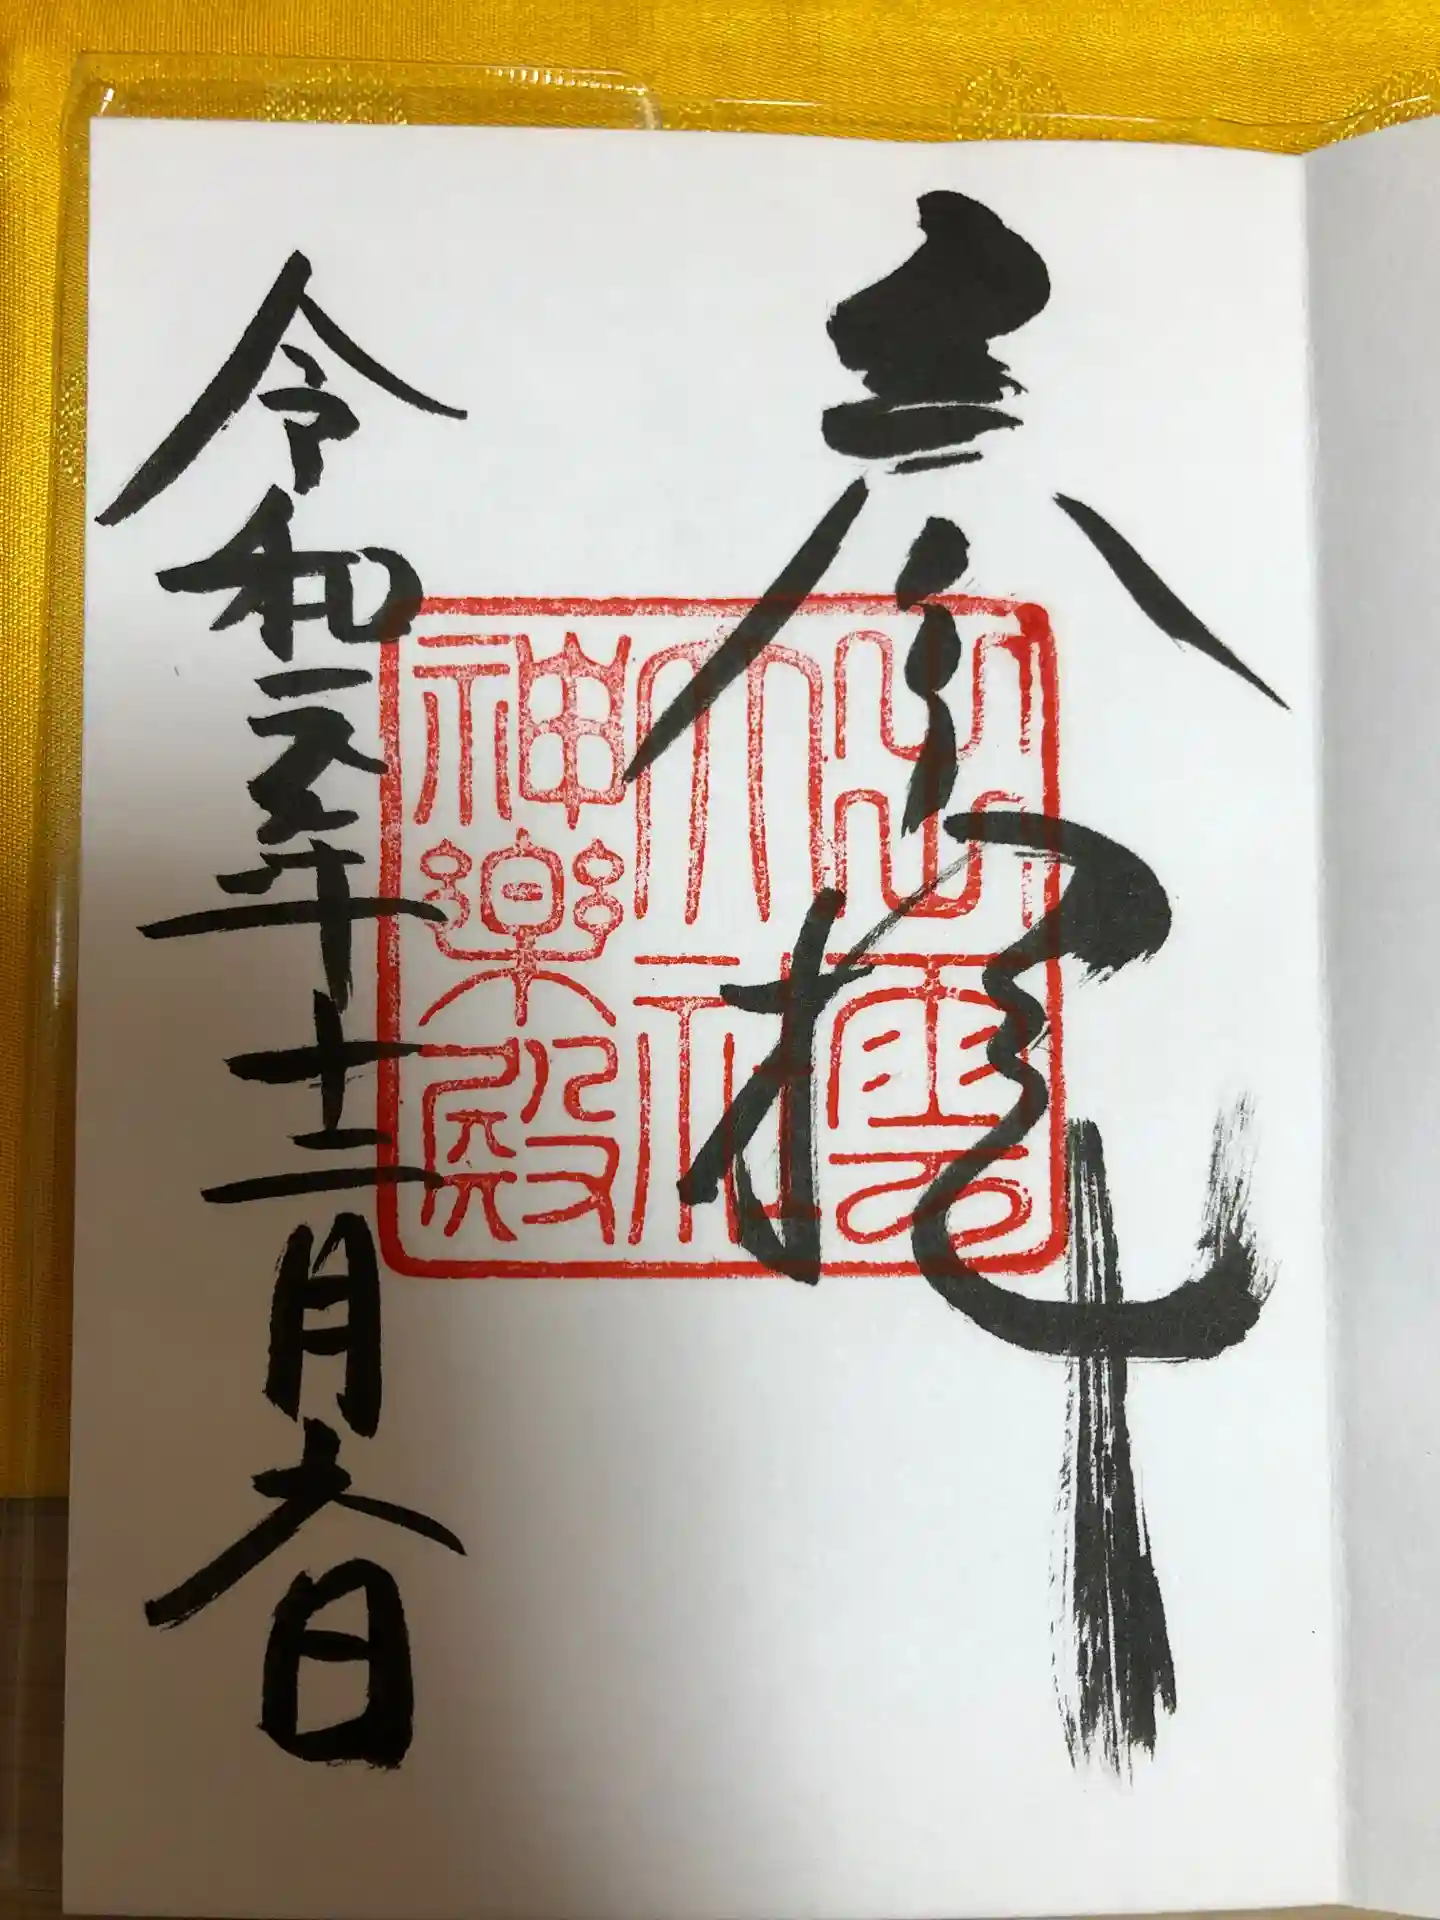 参拝
出雲
大社
神樂殿
令和元年十二月六日